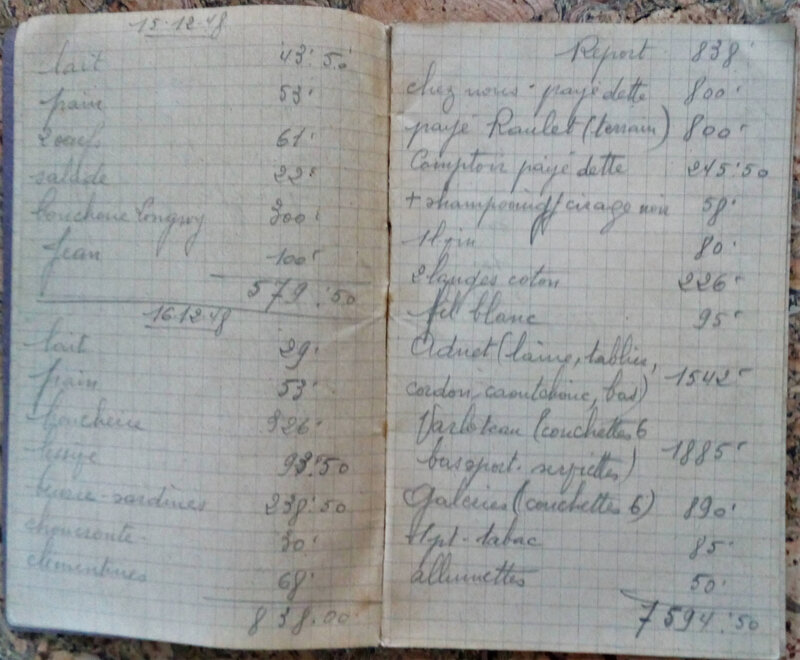 15-12-48
lait 43'50
pain 53'
2 oeufs 61'
salade 22'
boucherie Longwy 300'
Jean 100'
579'50
16-12-48
lait 29'
pain 53'
boucherie 326'
lessive 93'50
beurre-sardines 238'50
choucroute- 30'
clémentines 68'
838.00
Report 838'
chez nous - payé dette 800'
payé Raulet (terrain) 800'
Comptoir payé dette 245'50
+ shampooing / cirage noir 58'
1 l vin 80'
2 langes coton 226'
fil blanc 95'
Adnet (laine, tablier,
cordon, caoutchouc, bas) 1542'
Varloteau (couchettes 6
bas sport - serviettes) 1885'
Galeries (couchettes 6) 890'
1 pt - tabac 85'
allumettes 50'
7594'50